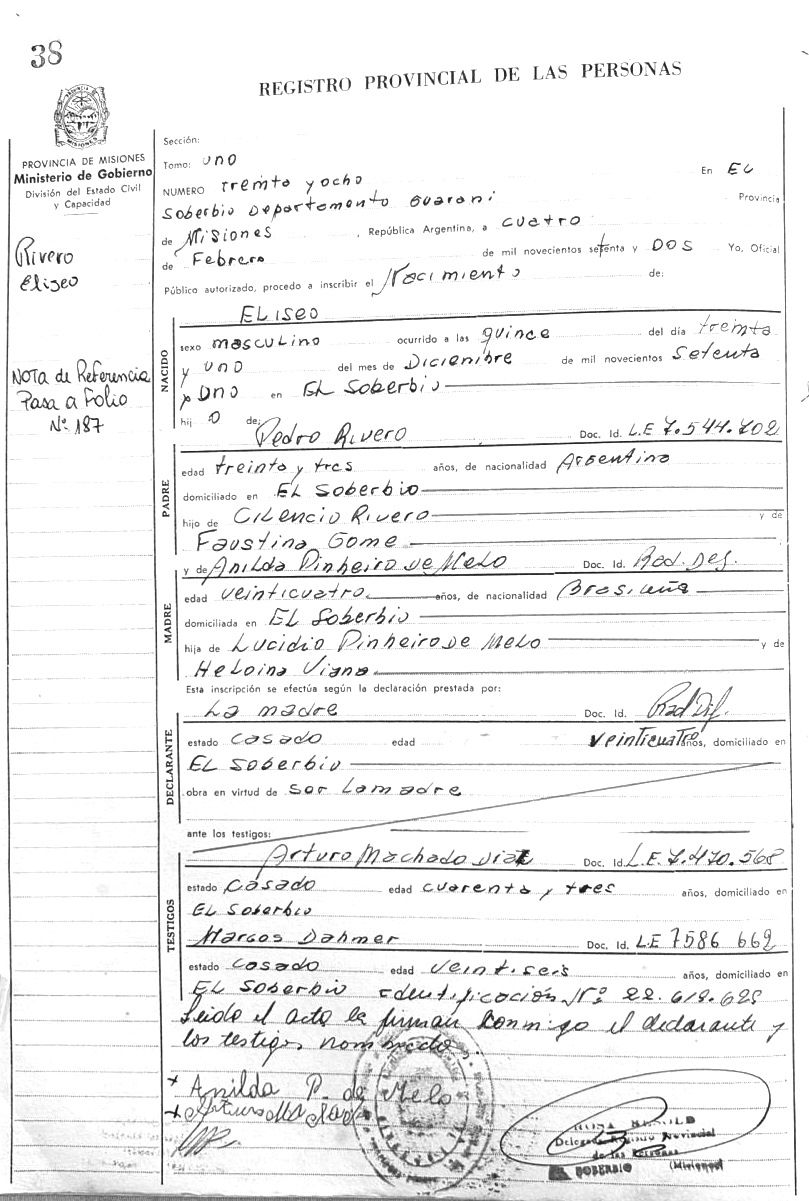 38
REGISTRO PROVINCIAL DE LAS PERSONAS
PROVINCIA DE MISIONES
Ministerio de Gobierno
División del Estado Civil
y Capacidad
Rivero
Eliseo
NOTA de Referencia
Pasa a Folio
Nº 187
Sección:
Tomo: UNO
NUMERO treinta y ocho En EL
Soberbio Departamento Guarani Provincia
de Misiones , República Argentina, a cuatro
de Febrero de mil novecientos setenta y DOS Yo, Oficial
Público autorizado, procedo a inscribir el Nacimiento de:
NACIDO
ELISEO
sexo masculino ocurrido a las quince del día treinta
y uno del mes de Diciembre de mil novecientos setenta
y uno en EL Soberbio
hij o de:
PADRE
Pedro Rivero Doc. Id. L.E 7.544.702
edad treinta y tres años, de nacionalidad Argentina
domiciliado en EL Soberbio
hijo de Cilencio Rivero y de
Faustina Gome
MADRE
y de Anilda Pinheiro de Melo Doc. Id. Rad. Def.
edad veinticuatro años, de nacionalidad Brasileña
domiciliada en EL Soberbio
hija de Lucidio Pinheiro de Melo y de
Heloina Viana
Esta inscripción se efectúa según la declaración prestada por:
DECLARANTE
La madre Doc. Id. Rad Dif.
estado casado edad veinticuatro años, domiciliado en
EL Soberbio
obra en virtud de ser la madre
ante los testigos:
TESTIGOS
Arturo Machado Diaz Doc. Id. L.E. 7.470.568
estado casado edad cuarenta y tres años, domiciliado en
EL Soberbio
Marcos Dahmer Doc. Id. L.E 7586 662
estado casado edad veintiseis años, domiciliado en
EL Soberbio Identificación Nº 22.619.628
Leido el acta la firman conmigo el declarante y
los testigos nombrados
Anilda P. de Melo
Arturo Machado
Delegada Registro Provincial
de las Personas
EL SOBERBIO (Misiones)